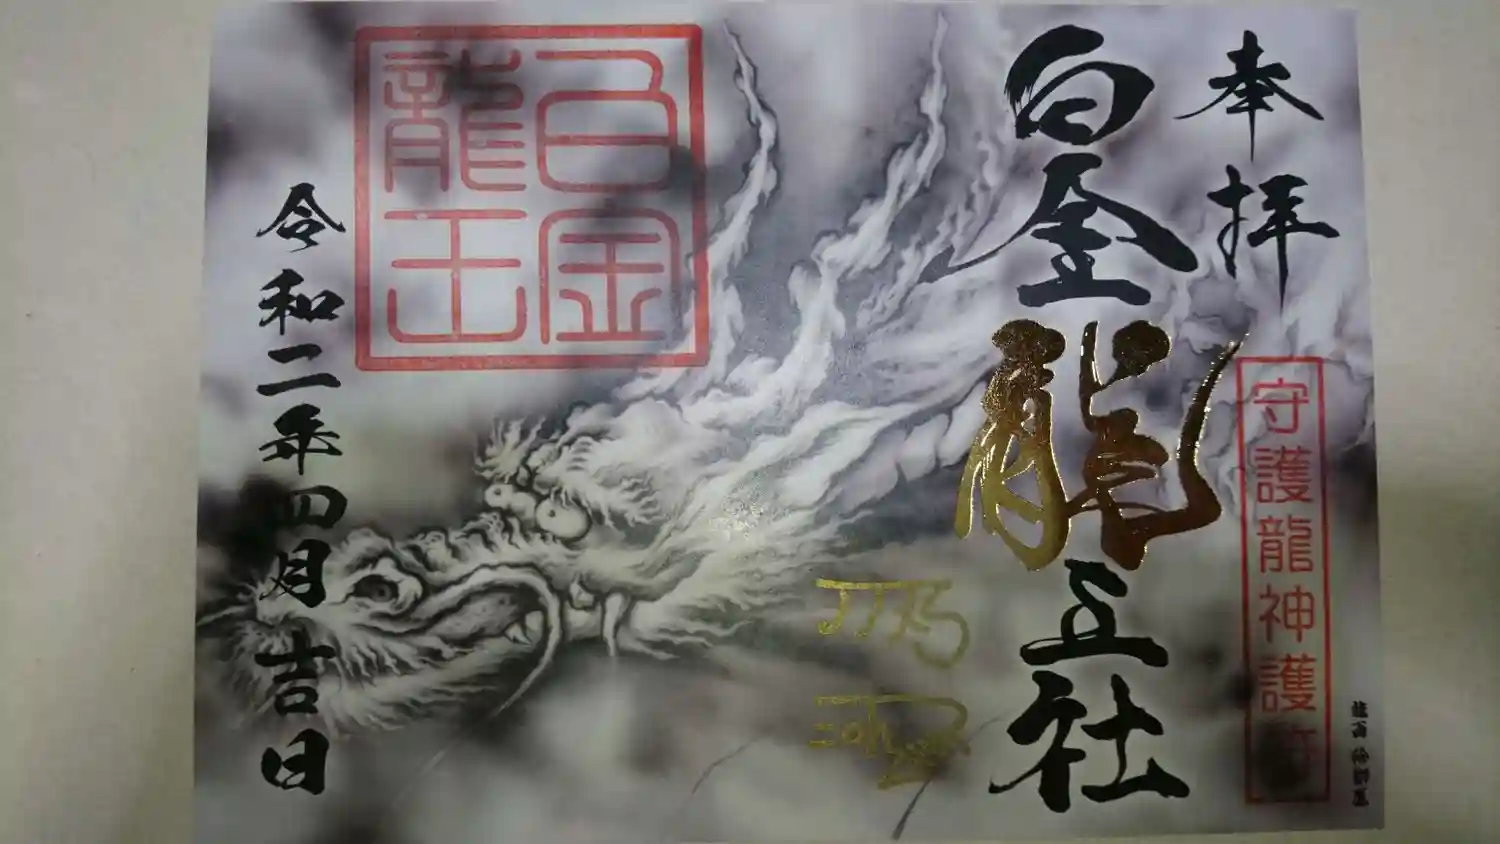 奉拝
白金龍王社
守護龍神護
白金
龍王
令和二年四月吉日